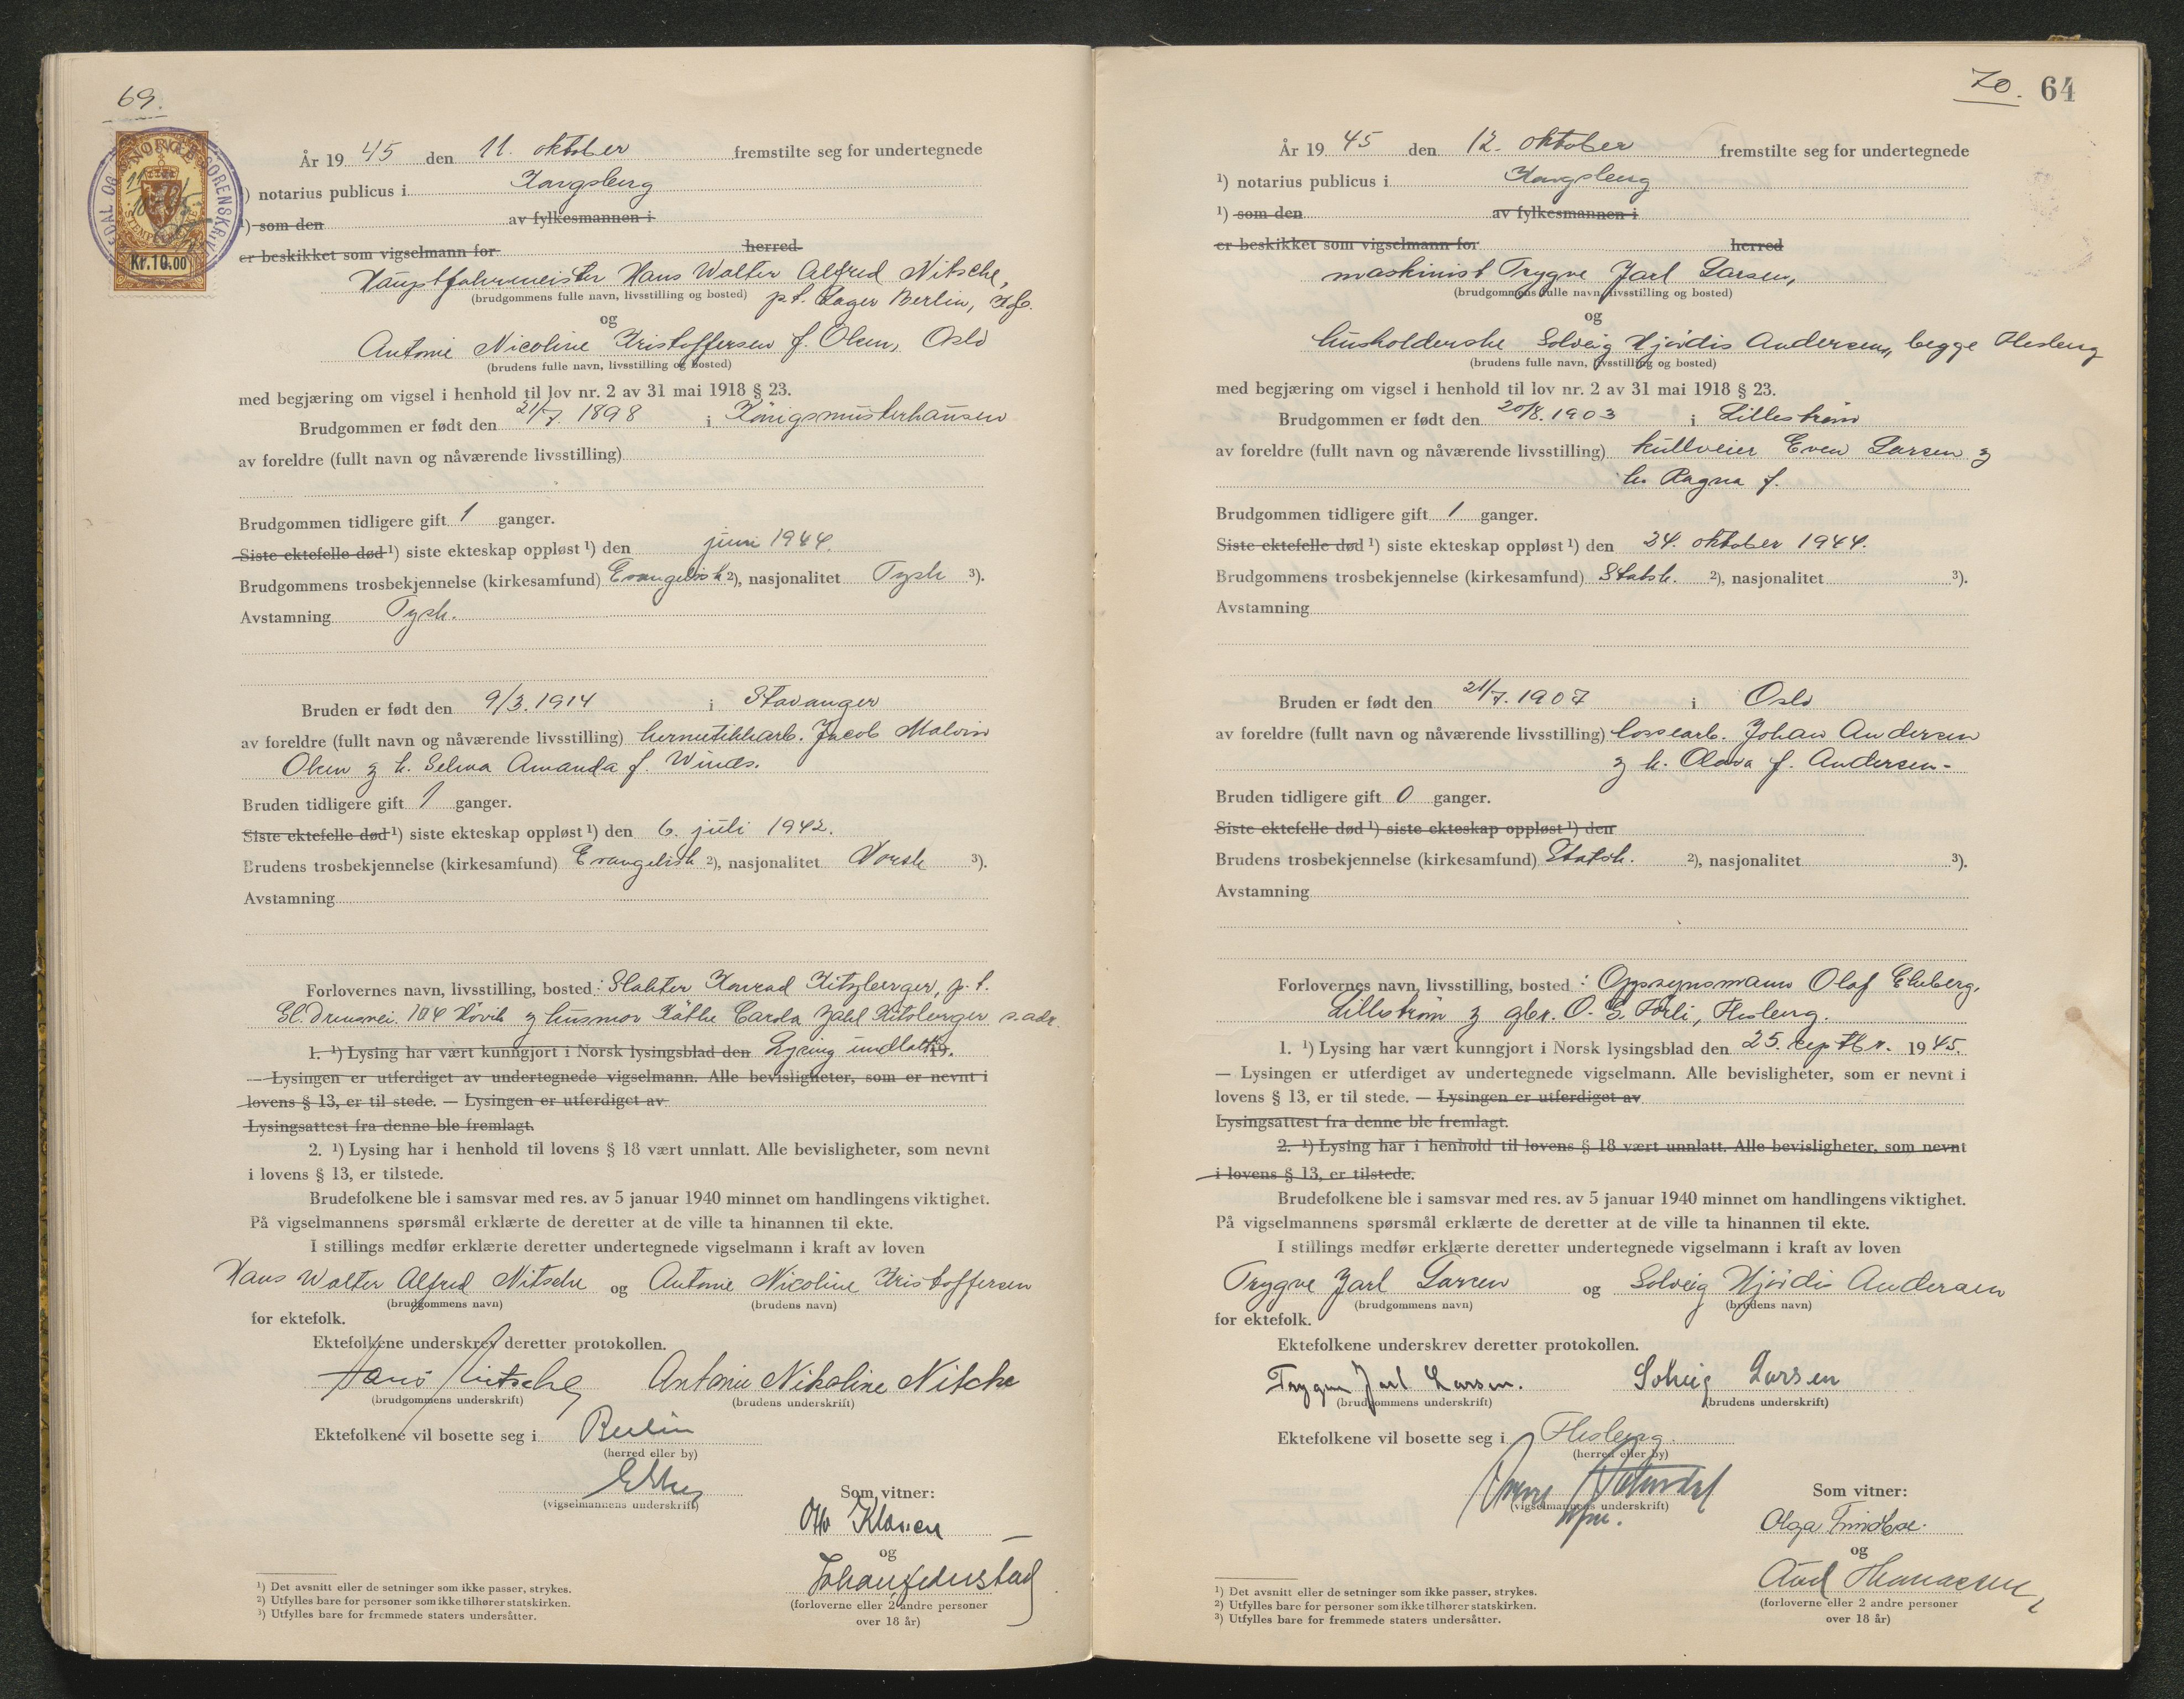 69.
NORGE
STEMPELMERKE
Kr.10.00
År 19 45 den 11. oktober fremstilte seg for undertegnede
¹) notarius publicus i Kongsberg
¹) som den av fylkesmannen i
er beskikket som vigselmann for herred
Hauptfahrmeister Hans Walter Alfred Nitsche,
(brudgommens fulle navn, livsstilling og bosted) p.t. Lager Berlin,
og
Antonie Nicoline Kristoffersen f. Olsen, Oslo
(brudens fulle navn, livsstilling og bosted)
med begjæring om vigsel i henhold til lov nr. 2 av 31 mai 1918 § 23.
Brudgommen er født den 21/7. 1898 i Königsmusterhausen
av foreldre (fullt navn og nåværende livsstilling)
Brudgommen tidligere gift 1 ganger.
Siste ektefelle død ¹) siste ekteskap oppløst ¹) den juni 1944.
Brudgommens trosbekjennelse (kirkesamfund) Evangelisk ²), nasjonalitet Tysk ³).
Avstamning Tysk.
Bruden er født den 9/3. 1914 i Stavanger
av foreldre (fullt navn og nåværende livsstilling) hermetikkarb. Jacob Malvin
Olsen & h. Selma Amanda f. Winds.
Bruden tidligere gift 1 ganger.
Siste ektefelle død ¹) siste ekteskap oppløst ¹) den 6. juli 1942.
Brudens trosbekjennelse (kirkesamfund) Evangelisk ²), nasjonalitet Norsk ³).
Avstamning
Forlovernes navn, livsstilling, bosted: Slakter Konrad Kitzberger, p.t.
Gl. Drmsvei. 104 Høvik & husmor Käthe Carola Zahl Kitzberger s. adr.
1. ¹) Lysing har vært kunngjort i Norsk lysingsblad den Lysing unnlatt 19.
— Lysingen er utferdiget av undertegnede vigselmann. Alle bevisligheter, som er nevnt i
lovens § 13, er til stede. — Lysingen er utferdiget av
Lysingsattest fra denne ble fremlagt.
2. ¹) Lysing har i henhold til lovens § 18 vært unnlatt. Alle bevisligheter, som nevnt
i lovens § 13, er tilstede.
Brudefolkene ble i samsvar med res. av 5 januar 1940 minnet om handlingens viktighet.
På vigselmannens spørsmål erklærte de deretter at de ville ta hinannen til ekte.
I stillings medfør erklærte deretter undertegnede vigselmann i kraft av loven
Hans Walter Alfred Nitsche og Antonie Nicoline Kristoffersen
(brudgommens navn) (brudens navn)
for ektefolk.
Ektefolkene underskrev deretter protokollen.
Hans Nitsche Antonie Nikoline Nitche
(brudgommens underskrift) (brudens underskrift)
Ektefolkene vil bosette seg i Berlin
(herred eller by)
(vigselmannens underskrift)
Som vitner:
Otto Klausen
og
Johan
(forloverne eller 2 andre personer
over 18 år)
¹) Det avsnitt eller de setninger som ikke passer, strykes.
²) Utfylles bare for personer som ikke tilhører statskirken.
³) Utfylles bare for fremmede staters undersåtter.
70. 64
År 19 45 den 12. oktober fremstilte seg for undertegnede
¹) notarius publicus i Kongsberg
¹) som den av fylkesmannen i
er beskikket som vigselmann for herred
maskinist Trygve Jarl Larsen,
(brudgommens fulle navn, livsstilling og bosted)
og
husholderske Solveig Hjørdis Andersen, begge Flesberg
(brudens fulle navn, livsstilling og bosted)
med begjæring om vigsel i henhold til lov nr. 2 av 31 mai 1918 § 23.
Brudgommen er født den 20/8. 1903 i Lillestrøm
av foreldre (fullt navn og nåværende livsstilling) kullveier Even Larsen &
h. Ragna f.
Brudgommen tidligere gift 1 ganger.
Siste ektefelle død ¹) siste ekteskap oppløst ¹) den 24. oktober 1944.
Brudgommens trosbekjennelse (kirkesamfund) Statsk. ²), nasjonalitet ³).
Avstamning
Bruden er født den 21/7. 1907 i Oslo
av foreldre (fullt navn og nåværende livsstilling) lossearb. Johan Andersen
& h. Olava f. Andersen-
Bruden tidligere gift 0 ganger.
Siste ektefelle død ¹) siste ekteskap oppløst ¹) den
Brudens trosbekjennelse (kirkesamfund) Statsk. ²), nasjonalitet ³).
Avstamning
Forlovernes navn, livsstilling, bosted: Oppsynsmann Olaf Ekeberg,
Lillestrøm & gbr. O. G. Førli, Flesberg.
1. ¹) Lysing har vært kunngjort i Norsk lysingsblad den 25. septbr. 19 45.
— Lysingen er utferdiget av undertegnede vigselmann. Alle bevisligheter, som er nevnt i
lovens § 13, er til stede. — Lysingen er utferdiget av
Lysingsattest fra denne ble fremlagt.
2. ¹) Lysing har i henhold til lovens § 18 vært unnlatt. Alle bevisligheter, som nevnt
i lovens § 13, er tilstede.
Brudefolkene ble i samsvar med res. av 5 januar 1940 minnet om handlingens viktighet.
På vigselmannens spørsmål erklærte de deretter at de ville ta hinannen til ekte.
I stillings medfør erklærte deretter undertegnede vigselmann i kraft av loven
Trygve Jarl Larsen og Solveig Hjørdis Andersen
(brudgommens navn) (brudens navn)
for ektefolk.
Ektefolkene underskrev deretter protokollen.
Trygve Jarl Larsen. Solveig Larsen
(brudgommens underskrift) (brudens underskrift)
Ektefolkene vil bosette seg i Flesberg.
(herred eller by)
(vigselmannens underskrift)
Som vitner:
Olga
og
Aud
(forloverne eller 2 andre personer
over 18 år)
¹) Det avsnitt eller de setninger som ikke passer, strykes.
²) Utfylles bare for personer som ikke tilhører statskirken.
³) Utfylles bare for fremmede staters undersåtter.